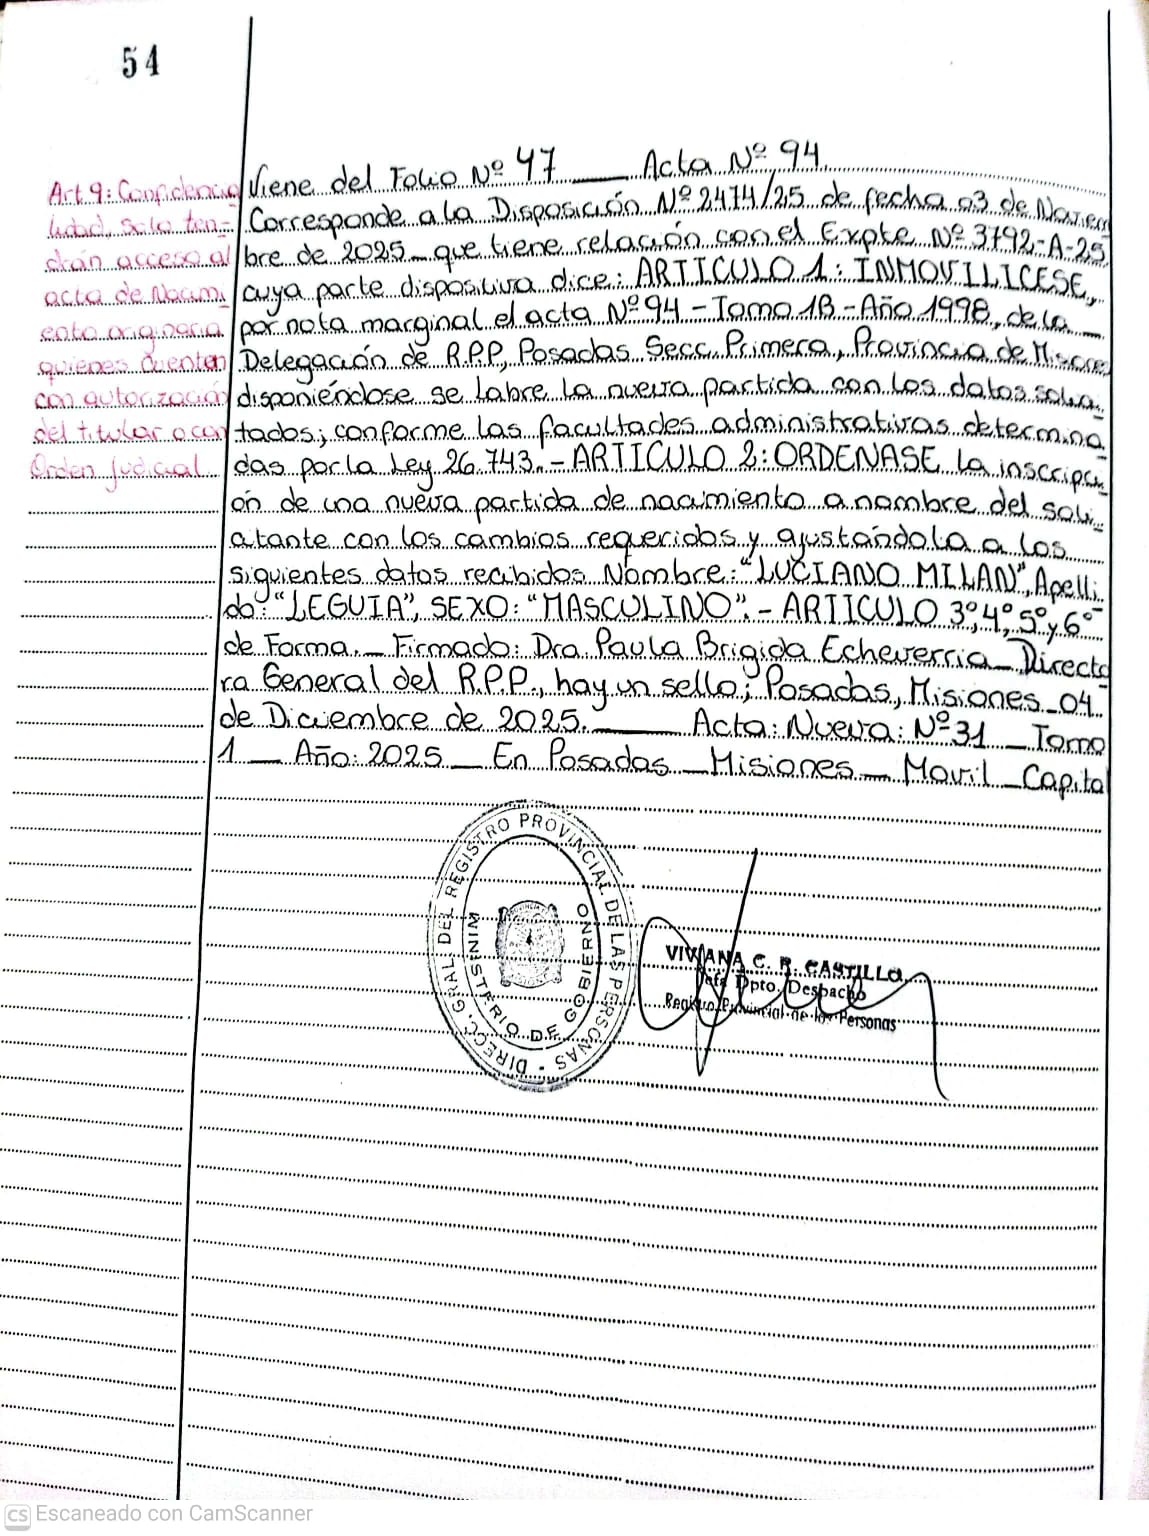 54
Art 9: Confidencia
lidad, solo ten-
drán acceso al
acta de Nacim
ento originaria
quienes cuenten
con autorización
del titular o con
Orden Judicial
Viene del Folio Nº 47 ___ Acta Nº 94.
Corresponde a la Disposición Nº 2474/25 de fecha 03 de Noviem
bre de 2025 _ que tiene relación con el Expte Nº 3792-A-25
cuya parte dispositiva dice: ARTICULO 1: INMOVILICESE,
por nota marginal el acta Nº 94 - Tomo 1B - Año 1998, de la _
Delegación de R.P.P, Posadas Secc. Primera, Provincia de Misiones
disponiéndose se labre la nueva partida con los datos solici
tados; conforme las facultades administrativas determina
das por la Ley 26.743.- ARTICULO 2: ORDENASE la inscripci
ón de una nueva partida de nacimiento a nombre del soli_
citante con los cambios requeridos y ajustándola a los
siguientes datos recibidos Nombre: "LUCIANO MILAN", Apelli
do: "LEGUIA", SEXO: "MASCULINO".- ARTICULO 3º, 4º, 5º y 6º
de Forma. _ Firmado: Dra Paula Brigida Echeverria _ Directo
ra General del R.P.P., hay un sello; Posadas, Misiones _ 04
de Diciembre de 2025. ___ Acta: Nueva: Nº 31 _ Tomo
1 _ Año: 2025 _ En Posadas _ Misiones _ Movil _ Capital
DIRECC. GRAL. DEL REGISTRO PROVINCIAL DE LAS PERSONAS -
MINISTERIO DE GOBIERNO
VIVIANA C. R. CASTILLO
Jefa Dpto. Despacho
Registro Provincial de las Personas
CS Escaneado con CamScanner